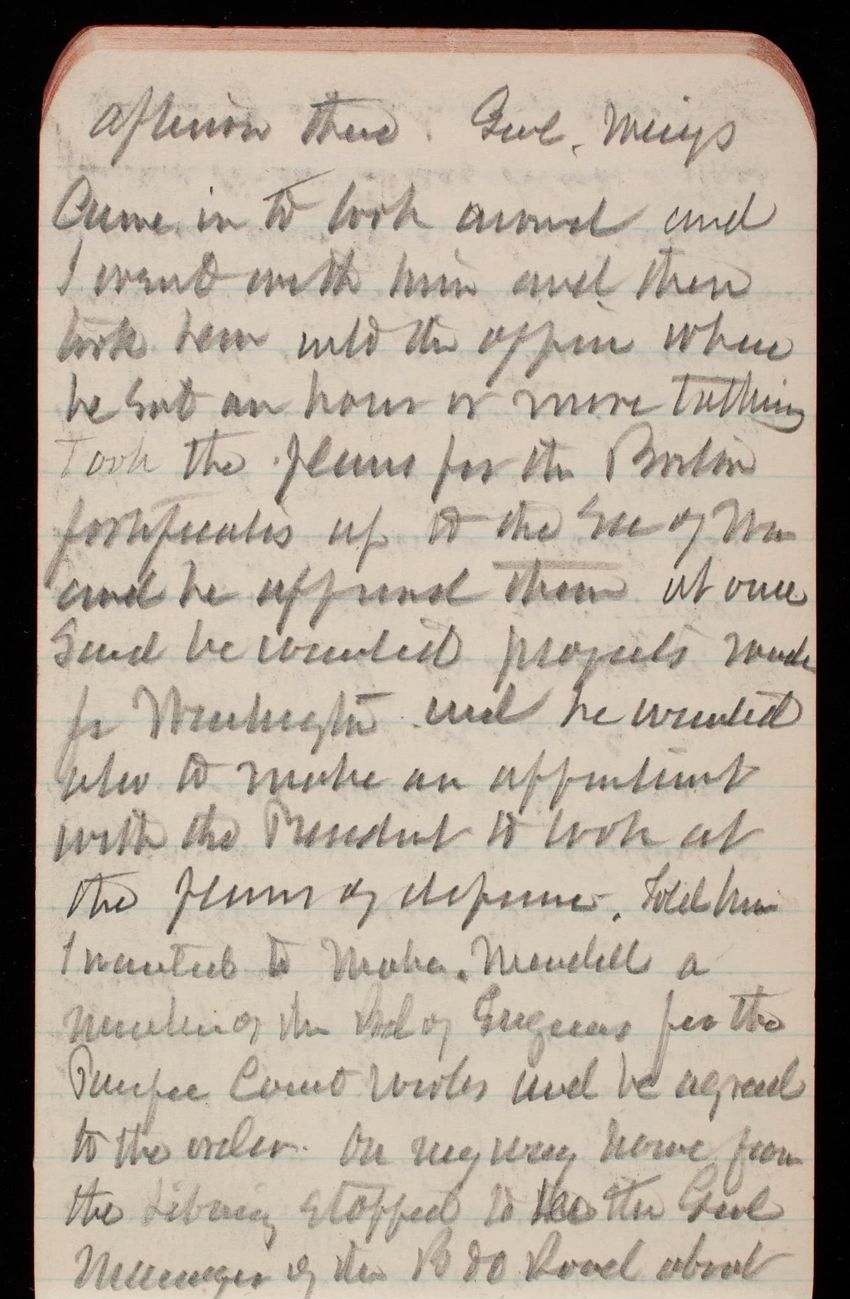 afternoon there. Genl. Meigs
Came in to look around and
I went with him and then
took him into the office where
he sat an hour or more talking
Took the plans for the Boston
fortificatis up to the Sec of War
and he approved them at once
Said he wanted projects made
for Washington and he wanted
also to make an appointment
with the President to look at
the plans of defense. Told him
I wanted to make Mendell a
member of the Bd of Engineers for the
Pacific Coast works and he agreed
to the order. On my way home from
the Library stopped to see the Genl
Manager of the B & O Road about